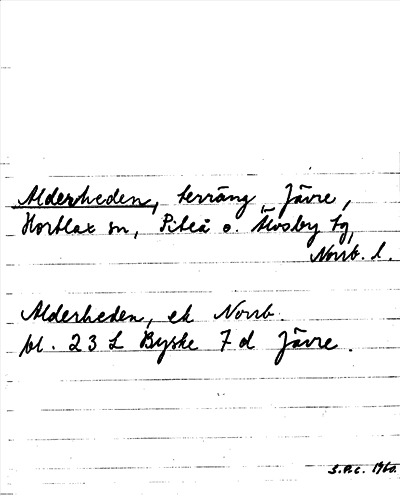 Alderheden, terräng Jävre,
Hortlax sn, Piteå o. Älvsby tg,
Norrb. l.
Alderheden, ek Norrb.
bl. 23 L Byske 7d Jävre.
S.P.C. 1960.